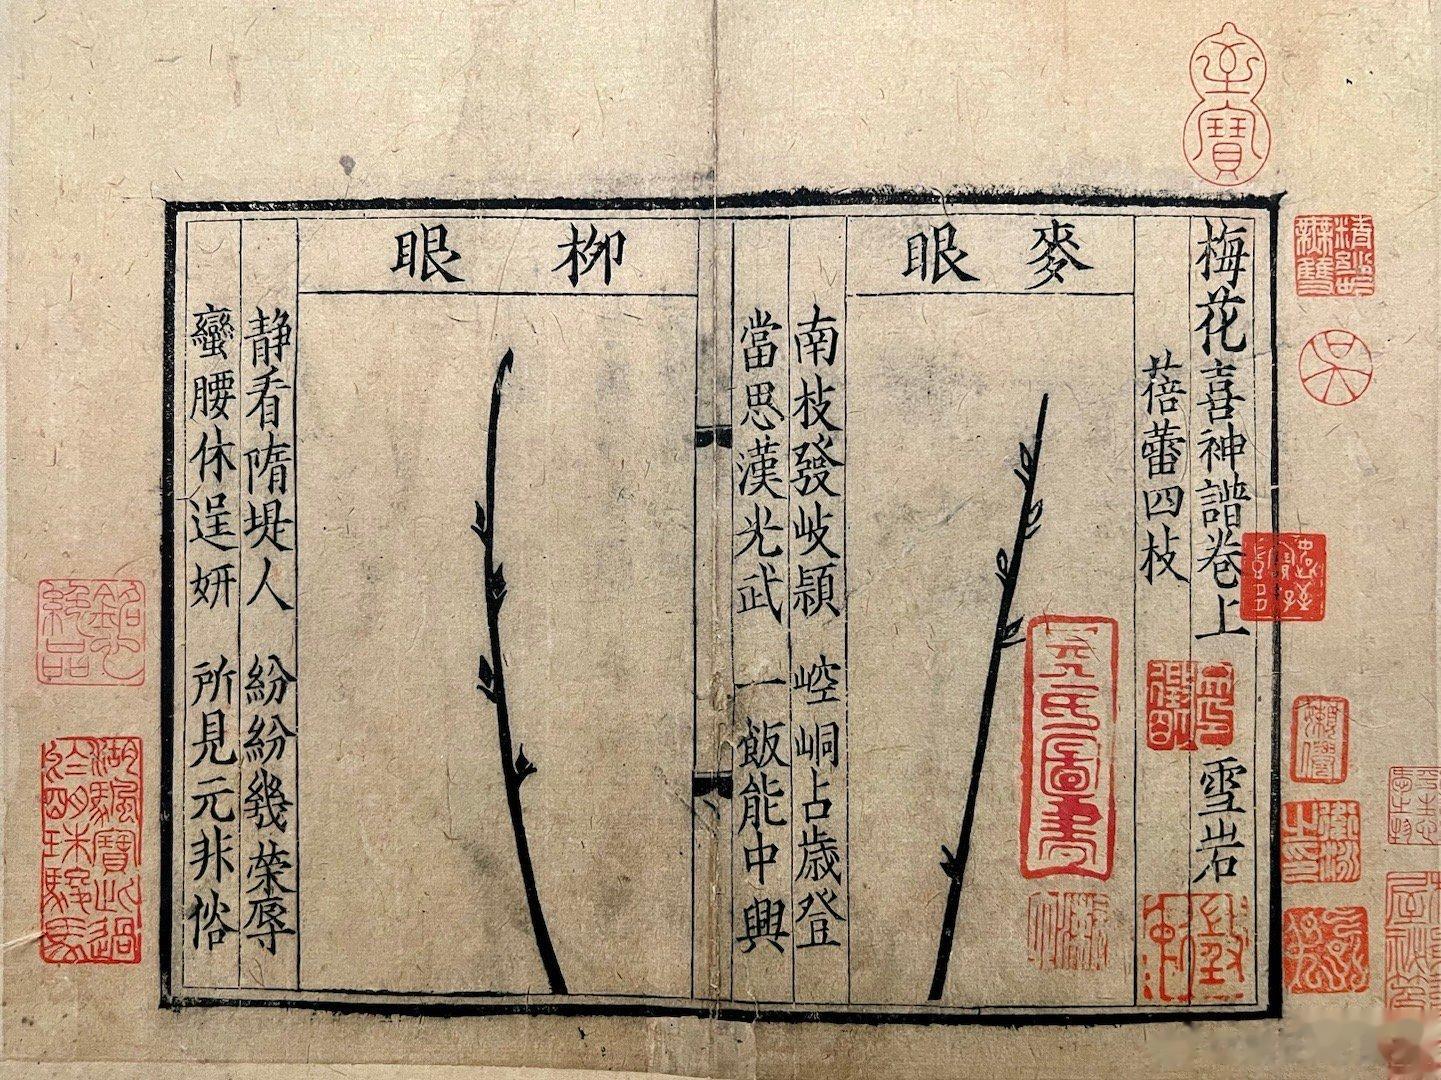 梅花喜神譜卷上
雪岩
蓓蕾四枝
麥眼
南枝發岐穎 崆峒占歲登
當思漢光武 一飯能中興
柳眼
靜看隋堤人 紛紛幾榮辱
蠻腰休逞妍 所見元非俗
至寶
吳
湖颿寶此過於明珠駿馬